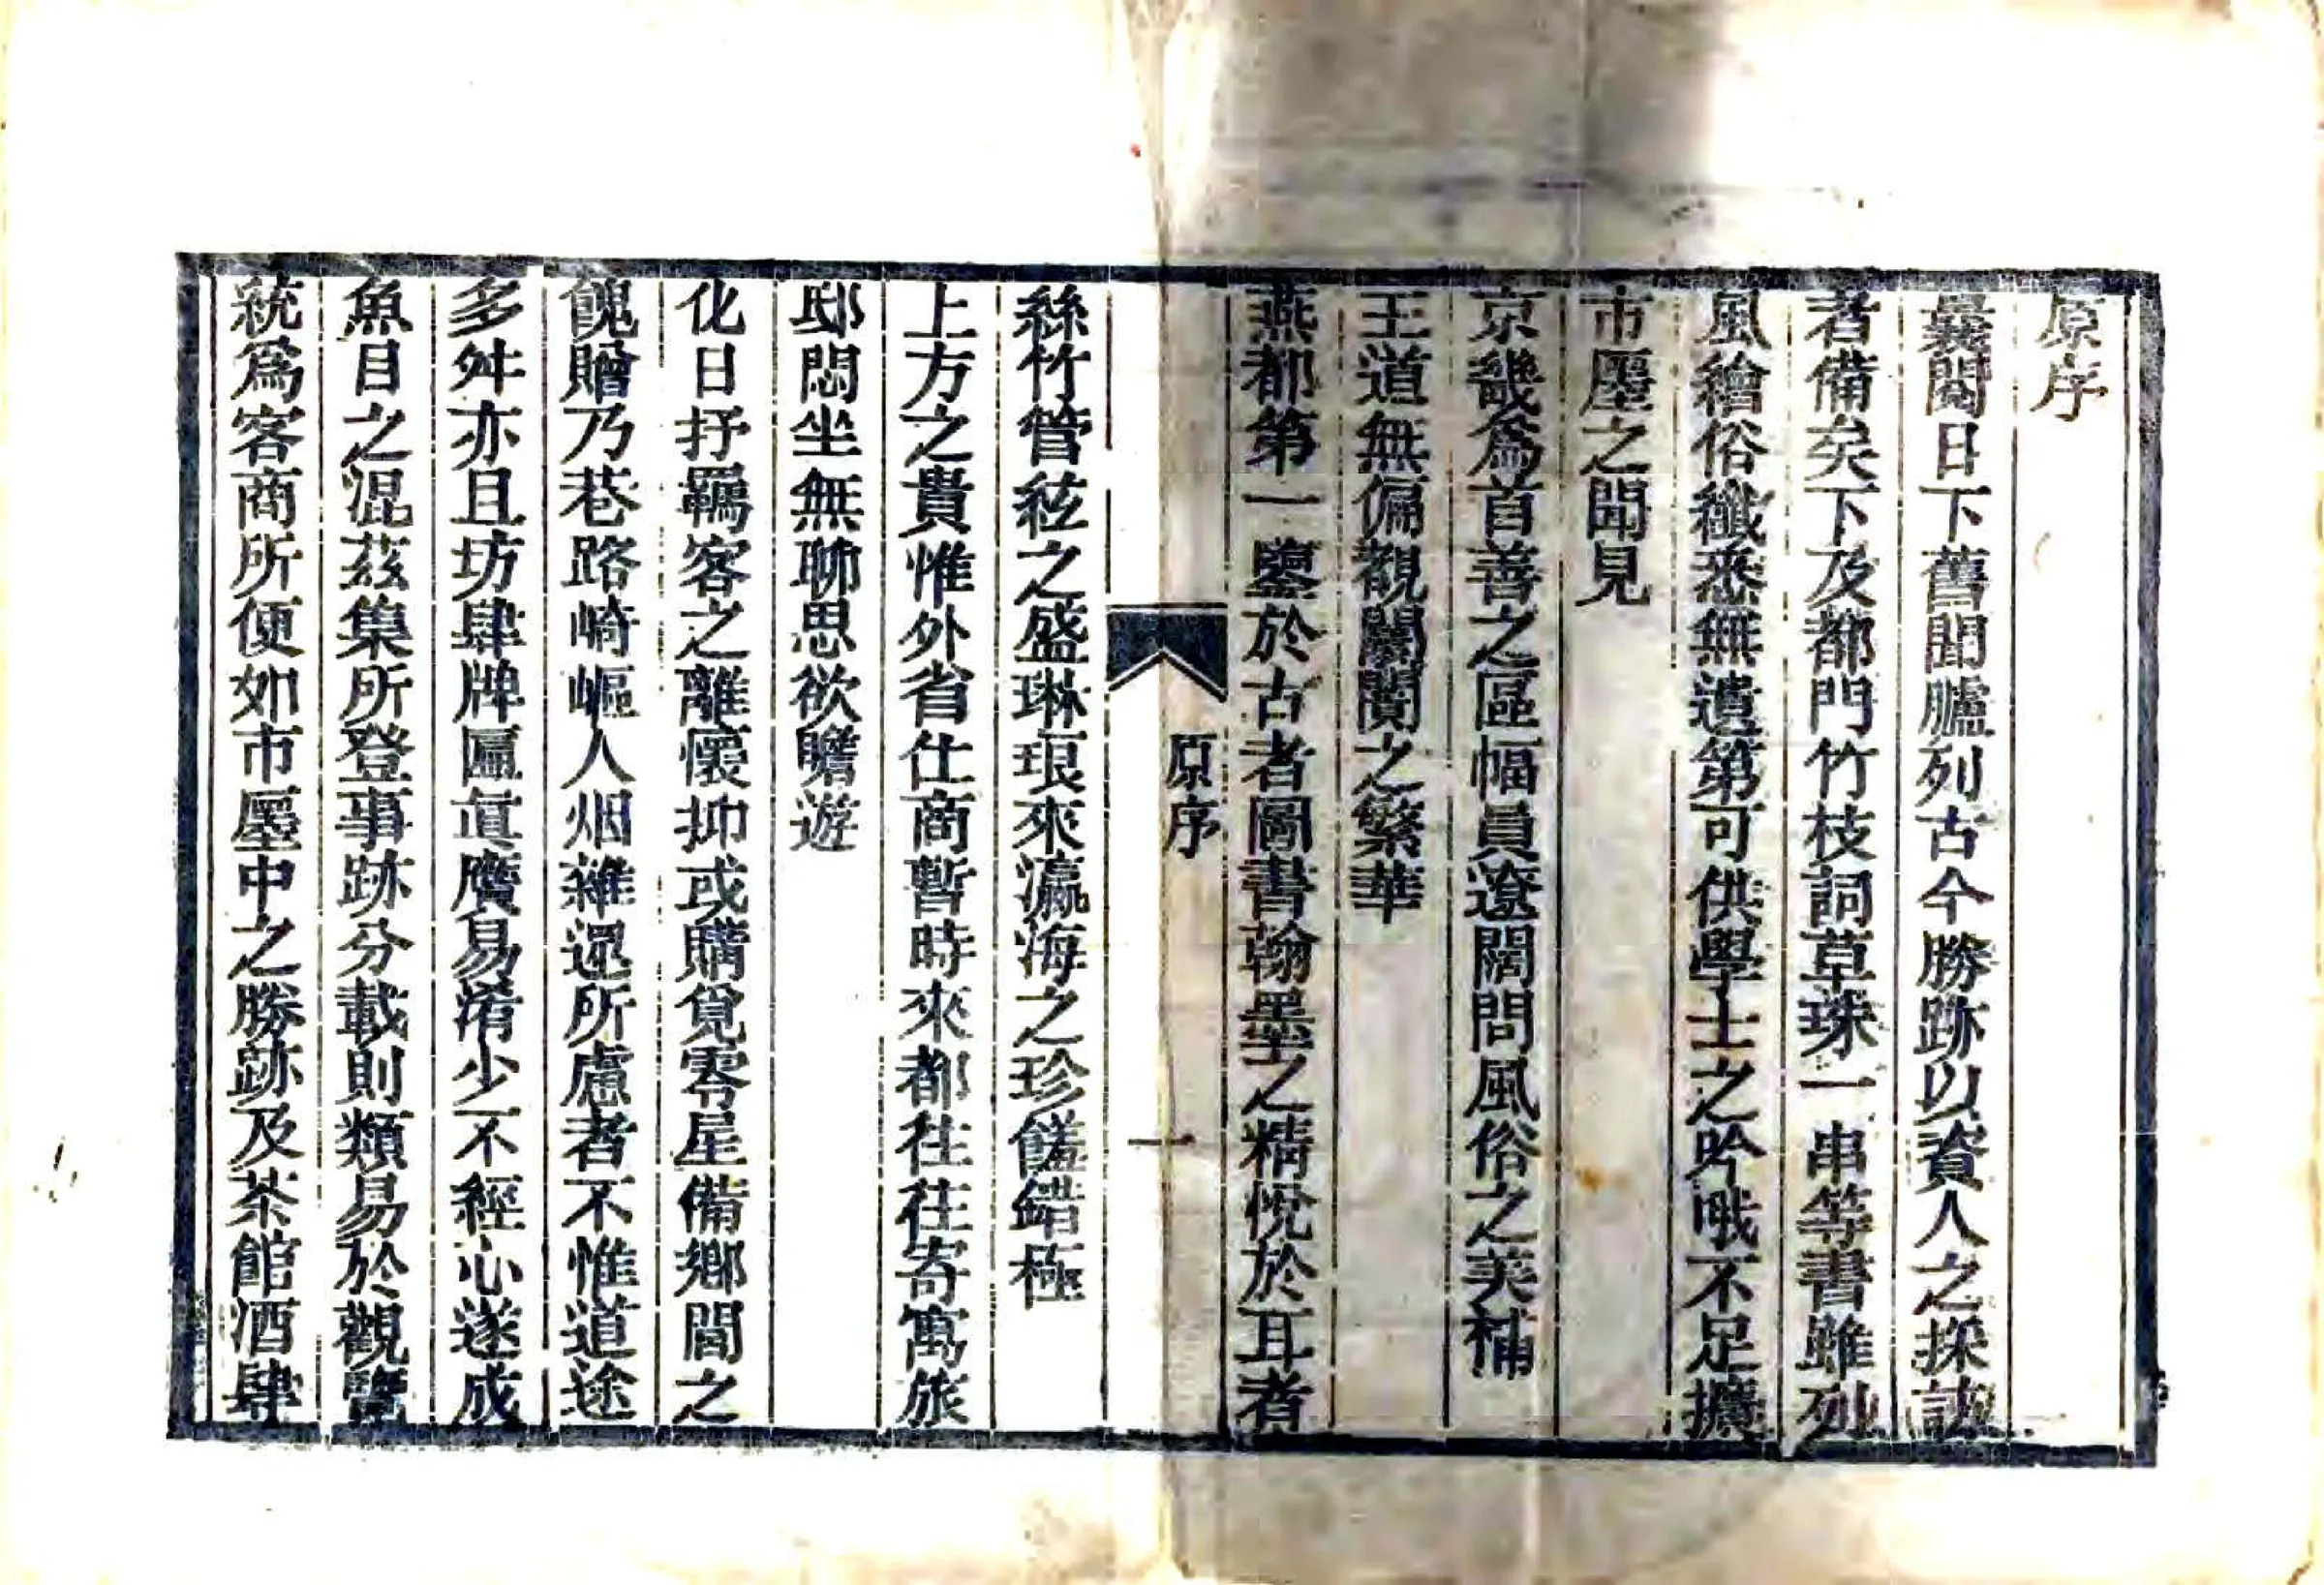 原序
曩閱日下舊聞臚列古今勝跡以資人之採諏
者備矣下及都門竹枝詞草珠一串等書雖列
風繪俗纖悉無遺第可供學士之吟哦不足擴
市廛之聞見
京畿為首善之區幅員遼闊問風俗之美補
王道無偏觀闤闠之繁華
燕都第一鑒於古者圖書翰墨之精悅於耳者
原序
一
絲竹管絃之盛琳琅來瀛海之珍饈錯極
上方之貴惟外省仕商暫時來都往往寄寓旅
邸悶坐無聊思欲瞻遊
化日抒羈客之離懷抑或購覓零星備鄉閭之
餽贈乃巷路崎嶇人烟雜遝所慮者不惟道途
多舛亦且坊肆牌匾真贋易淆少不經心遂成
魚目之混茲集所登事跡分載則類易於觀覽
統為客商所便如市廛中之勝跡及茶館酒肆